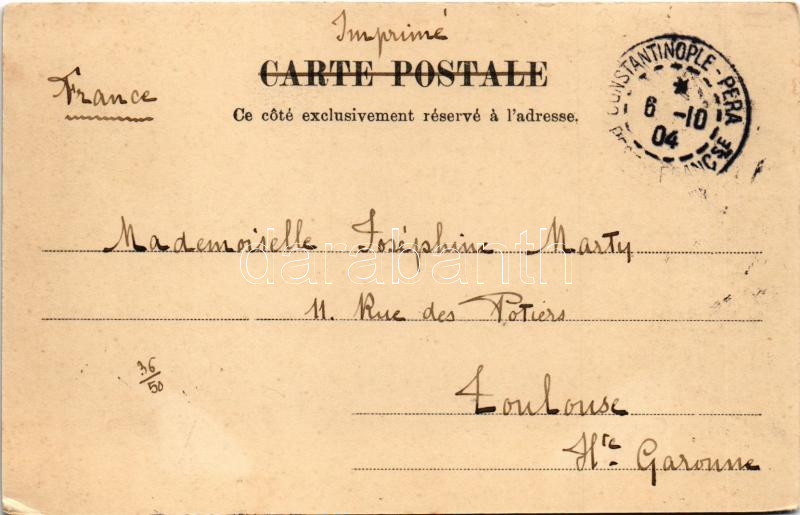 Imprimé
CARTE POSTALE
France
Ce côté exclusivement réservé à l'adresse.
CONSTANTINOPLE - PERA
6 -10
04
POSTE FRANCSE
Mademoiselle Joséphine Marty
darabanth
11. Rue des Potiers
36/50
Toulouse
Hte Garonne